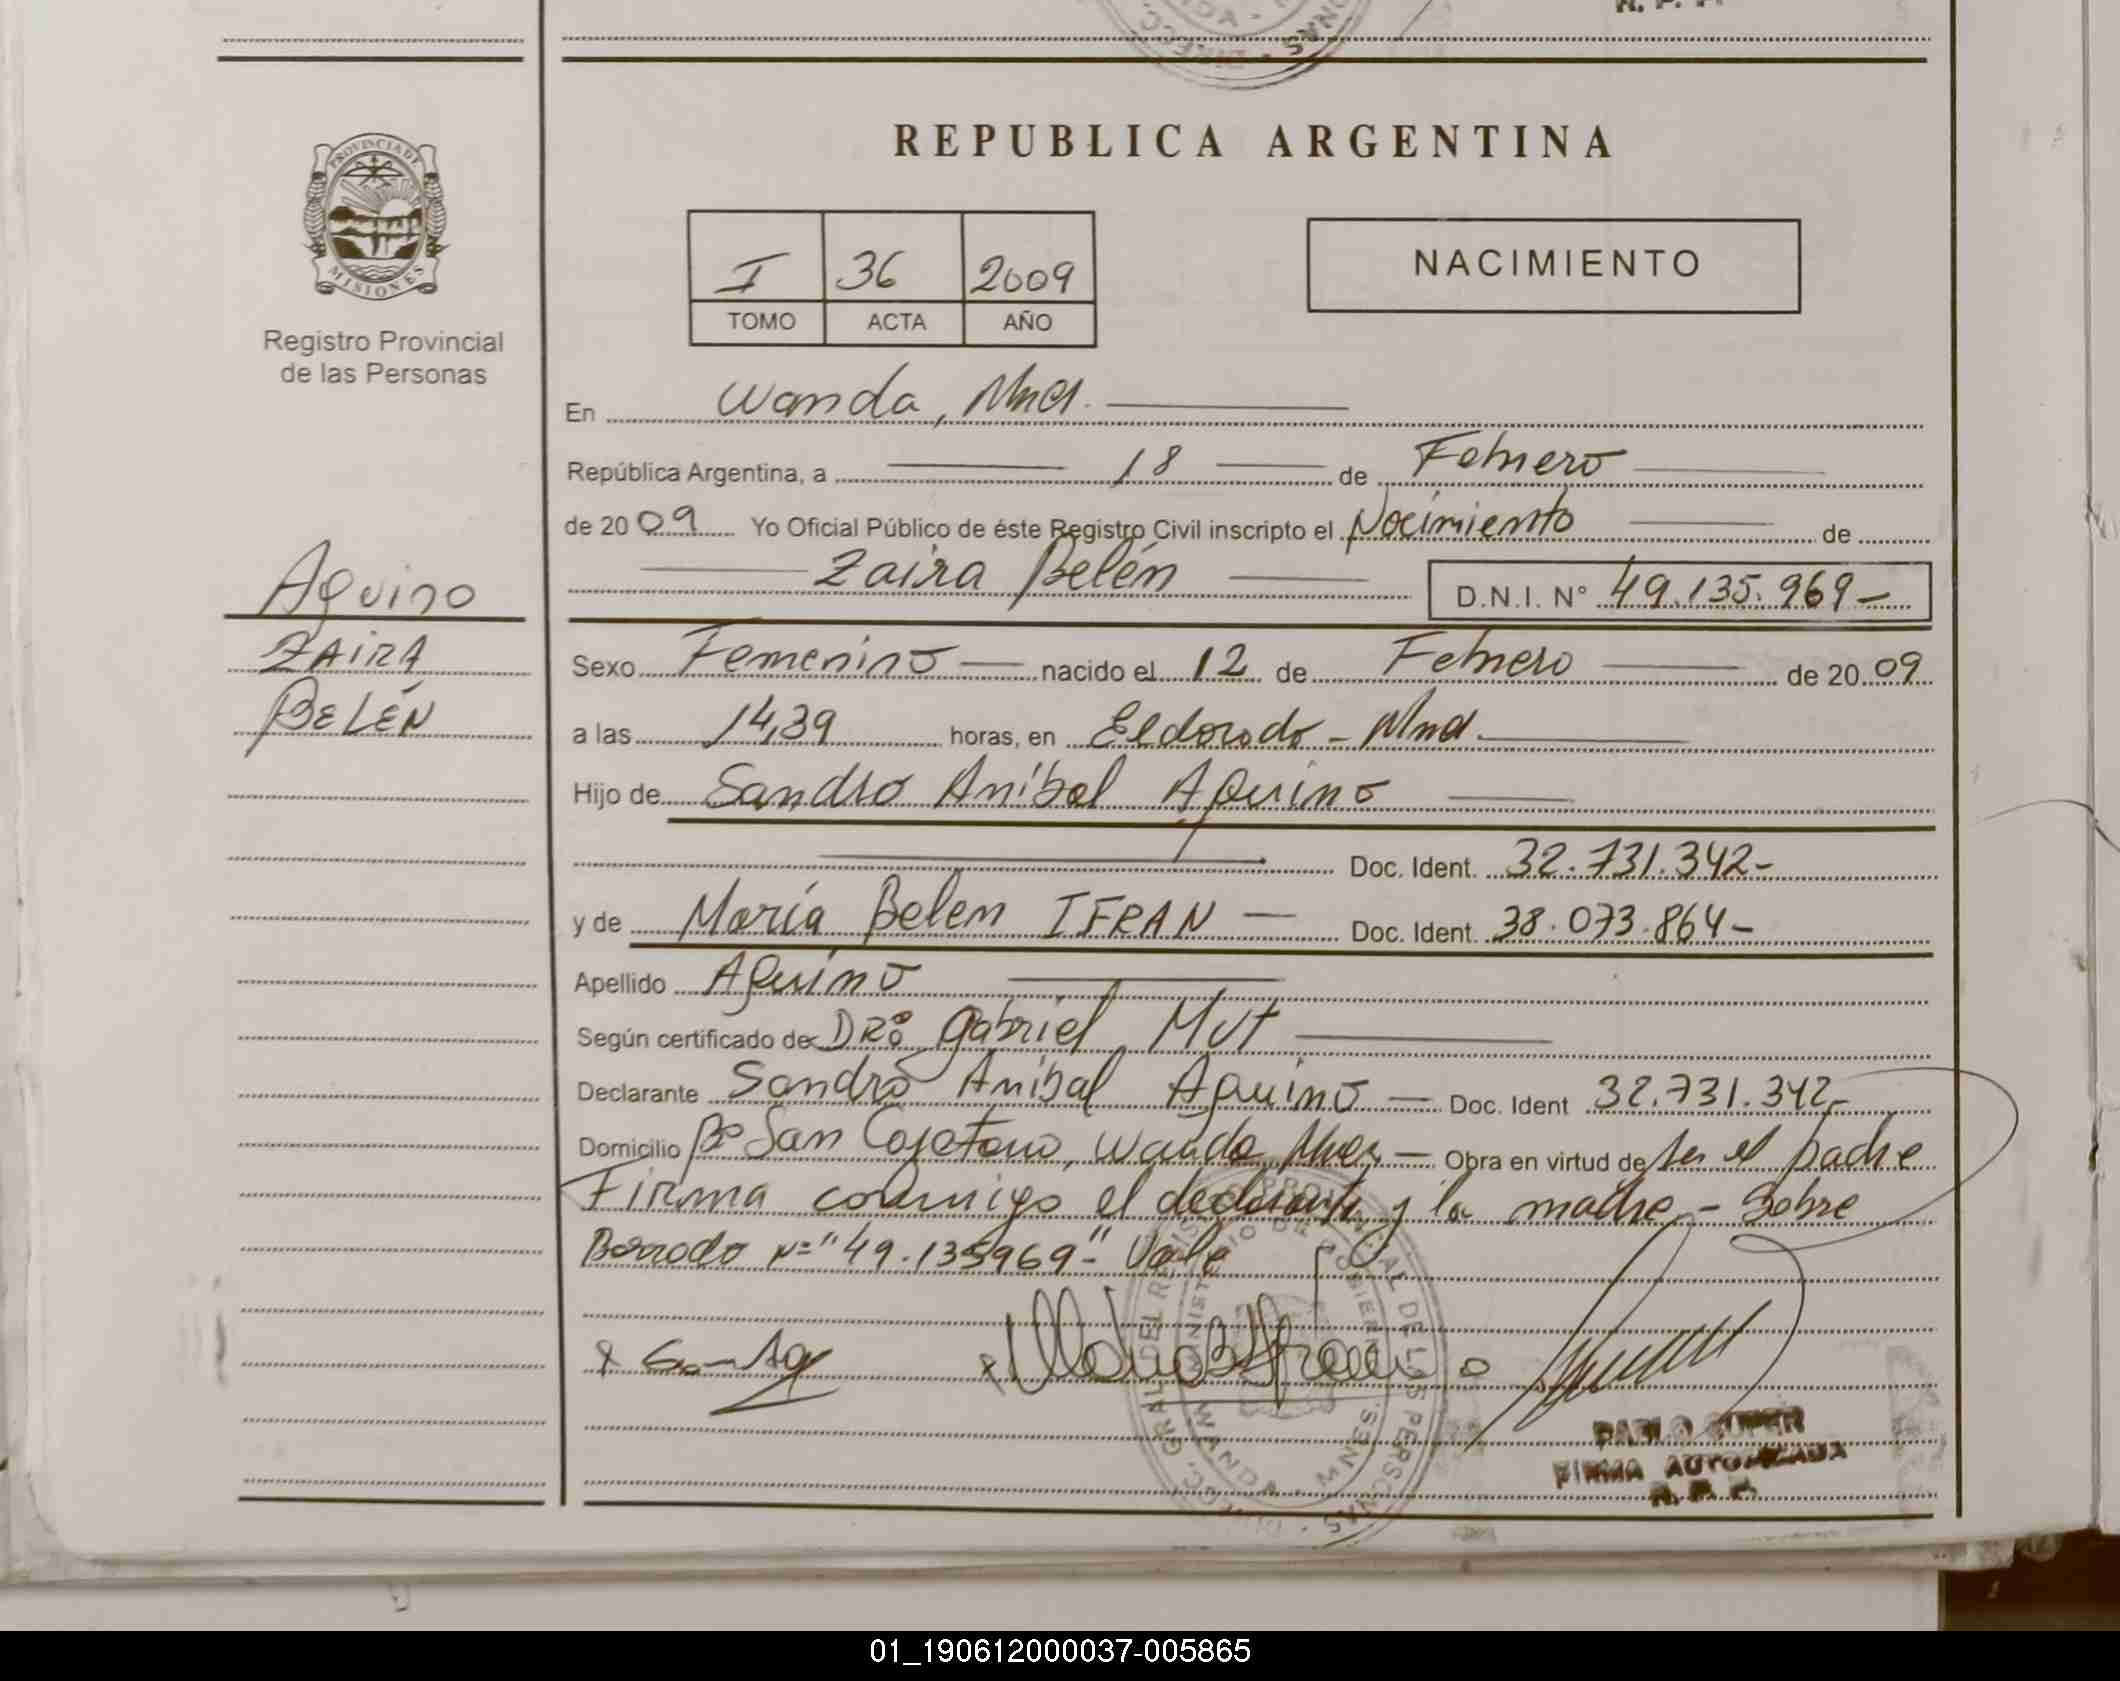 PROVINCIA DE
MISIONES
Registro Provincial
de las Personas
Aquino
ZAIRA
BELÉN
REPUBLICA ARGENTINA
I 36 2009
TOMO ACTA AÑO
NACIMIENTO
En Wanda, Mnes.
República Argentina, a 18 de Febrero
de 20 09 Yo Oficial Público de éste Registro Civil inscripto el Nacimiento de
Zaira Belén D.N.I. N° 49.135.969-
Sexo Femenino nacido el 12 de Febrero de 20 09
a las 14,39 horas, en Eldorado - Mnes.
Hijo de Sandro Aníbal Aquino
Doc. Ident. 32.731.342-
y de María Belen IFRAN Doc. Ident. 38.073.864-
Apellido Aquino
Según certificado de DRº Gabriel Mut
Declarante Sandro Anibal Aquino Doc. Ident 32.731.342-
Domicilio Bº San Cayetano, Wanda, Mnes Obra en virtud de ser el padre
Firma conmigo el declarante y la madre - Sobre
Borrado Nº "49.135969-" Vale
DIRECC. GRAL. DEL REGISTRO PROVINCIAL DE LAS PERSONAS
MINISTERIO DE GOBIERNO
WANDA - MNES.
FIRMA AUTORIZADA
R. P. P.
01_190612000037-005865